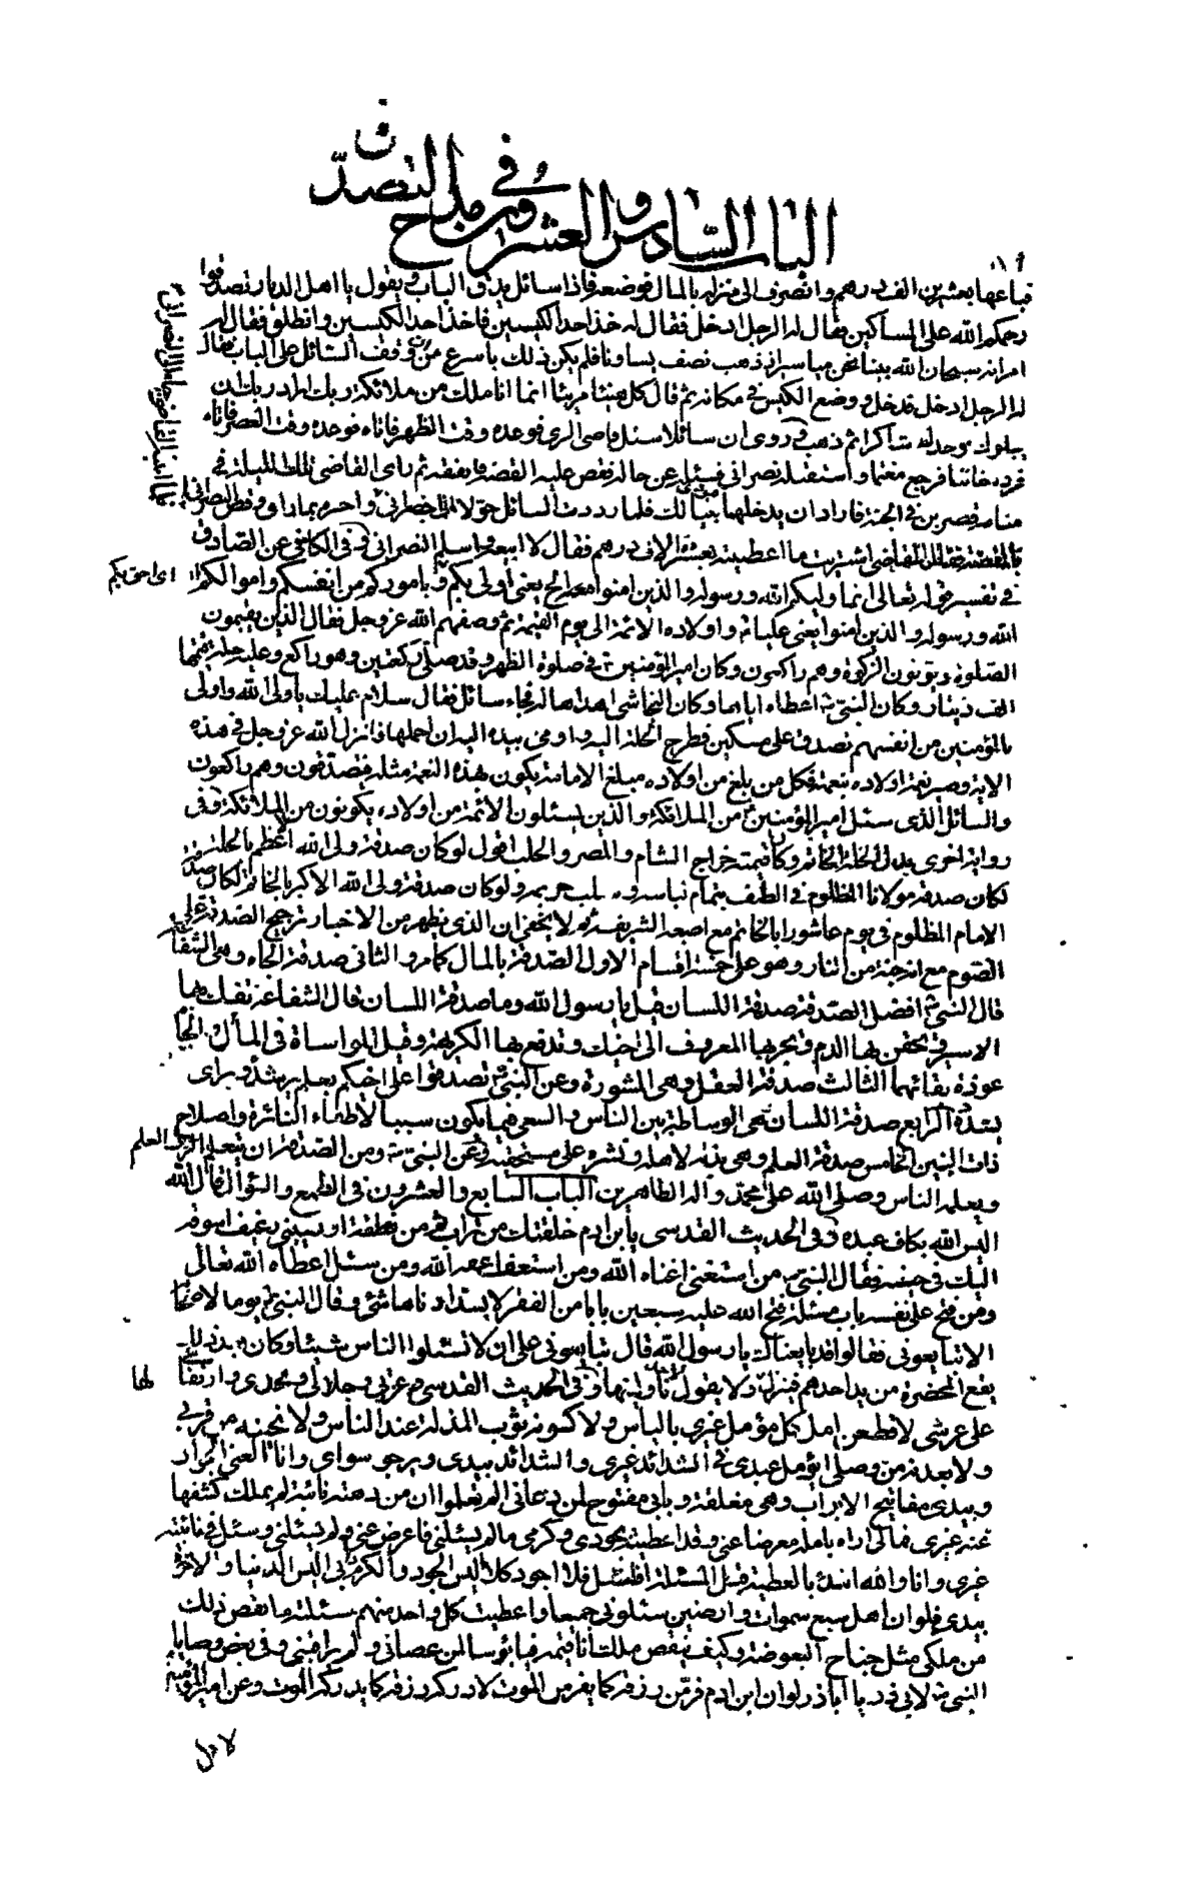 الباب السادس والعشرون في مدح التصدق
فباعها بعشرين الف درهم وانصرف الى منزله بالمال فوضعه فاذا سائل يدق الباب ويقول يا اهل الدار تصدقوا
رحمكم الله على المساكين فقال له الرجل ادخل فقال له خذ احد الكيسين فاخذ احد الكيسين وانطلق فقال له
امراته سبحان الله بينا نحن مياسير اذ ذهب نصف يسارنا فلم يكن ذلك باسرع من ان وقف السائل على الباب فقال
له الرجل ادخل فدخل ووضع الكيس في مكانه ثم قال كل هنيئا مريئا انما انا ملك من ملائكة ربك اراد ربك ان
يبلوك فوجدك شاكرا ثم ذهب وروى ان سائلا سئل قاضى الرى فوعده وقت الظهر فاتاه فوعده وقت العصر فاتاه
فرده خائبا فرجع مغتما واستقبله نصرانى فسئله عن حاله فقص عليه القصة ثم راى القاضى تلك الليلة في
منامه قصرين في الجنة فاراد ان يدخلهما فلما رددت السائل حولا الى النصرانى واخبره بما راى
فقال القاضى اشتريت ما اعطيته بعشرة الاف درهم فقال لا ابيعه واسلم النصرانى وفي الكافي عن الصادق
في تفسير قوله تعالى انما وليكم الله ورسوله والذين امنوا يعنى اولى بكم وباموركم من انفسكم واموالكم
اى احق بكم
الله ورسوله والذين امنوا يعنى عليا واولاده الائمة الى يوم القيمة ثم وصفهم الله عز وجل فقال الذين يقيمون
الصلوة ويؤتون الزكوة وهم راكعون وكان امير المؤمنين في صلوة الظهر وقد صلى ركعتين وهو راكع وعليه حلة قيمتها
الف دينار وكان النبي اعطاه اياها وكان النجاشى اهداها له فجاء سائل فقال سلام عليك يا ولى الله واولى
بالمؤمنين من انفسهم تصدق على مسكين فطرح الحلة اليه واومى بيده اليه ان احملها فانزل الله عز وجل في هذه
الاية وصير نعمة اولاده بنعمته فكل من بلغ من اولاده مبلغ الامامة يكون بهذه النعمة مثله فيتصدقون وهم راكعون
والسائل الذى سئل امير المؤمنين من الملائكة والذين يسئلون الائمة من اولاده يكونون من الملائكة وفي
رواية اخرى بدل الحلة الخاتم وكان قيمته خراج الشام والمصر والحلب اقول لو كان صدقة ولى الله الاعظم بالحلة
لكان صدقة مولانا المظلوم في الطف بتمام ولو كان صدقة ولى الله الاكبر بالخاتم لكان صدقة
الامام المظلوم في يوم عاشورا بالخاتم مع اصبعه الشريفة لا يخفى ان الذى يظهر من الاخبار ترجيح الصدقة على
الصوم مع انه جنة من النار وهو على خمسة اقسام الاول الصدقة بالمال كما مر والثانى صدقة الجاه وهي الشفاعة
قال النبي افضل الصدقة صدقة اللسان قيل يا رسول الله وما صدقة اللسان قال الشفاعة تفك بها
الاسير وتحقن بها الدم وتجر بها المعروف الى اخيك وتدفع بها الكريهة وقيل المواساة في المال والجاه
عوذة بقائهما الثالث صدقة العقل وهي المشورة وعن النبي تصدقوا على اخيكم بعلم يرشده وراى
يسدده الرابع صدقة اللسان وهي الوساطة بين الناس والسعى فيما يكون سببا لاطفاء النائرة واصلاح
ذات البين الخامس صدقة العلم وهي بذله لاهله ونشره على مستحقه وعن النبي ومن الصدقة ان يتعلم الرجل العلم
ويعلمه الناس وصلى الله على محمد واله الطاهرين الباب السابع والعشرون في الطمع والسؤال قال الله
اليس الله بكاف عبده وفي الحديث القدسى يا ابن ادم خلقتك من تراب ثم من نطفة او يعيينى رغيف اسوقه
اليك في حينه فقال النبي من استغنى اغناه الله ومن استعف اعفه الله ومن سئل اعطاه الله تعالى
ومن فتح على نفسه باب مسئلة فتح الله عليه سبعين بابا من الفقر لا يسد ادناها شئ وقال النبي يوما لاصحابه
الا تبايعونى فقالوا قد بايعناك يا رسول الله قال تبايعونى على ان لا تسئلوا الناس شيئا وكان بعد ذلك
يقع المخصرة من يد احدهم فينزل لها ولا يقول لاحد ناولنيها وفي الحديث القدسى وعزتى وجلالى ومجدى وارتفاعى
على عرشى لاقطعن امل كل مؤمل غيرى بالياس ولاكسونه ثوب المذلة عند الناس ولانحينه من قربى
ولابعدنه من وصلى ايؤمل عبدى في الشدائد غيرى والشدائد بيدى ويرجو سواى وانا الغنى الجواد
وبيدى مفاتيح الابواب وهي مغلقة وبابى مفتوح لمن دعانى الم تعلموا ان من دهته نائبة لم يملك كشفها
عنه غيرى فما لى اراه بامله معرضا عنى وقد اعطيته بجودى وكرمى ما لم يسئلنى فاعرض عنى ولم يسئلنى وسئل في نائبته
غيرى وانا والله ابتدئ بالعطية قبل المسئلة افاسئل فلا اجود كلا اليس الجود والكرم لى اليس الدنيا والاخرة
بيدى فلو ان اهل سبع سموات وارضين سئلونى جميعا واعطيت كل واحد منهم مسئلته ما نقص ذلك
من ملكى مثل جناح البعوضة وكيف ينقص ملك انا قيمه فيا بؤسا لمن عصانى ولم يراقبنى وفي بعض وصايا
النبي لابى ذر يا اباذر لو ان ابن ادم فر من رزقه كما يفر من الموت لادركه رزقه كما يدركه الموت وعن امير المؤمنين